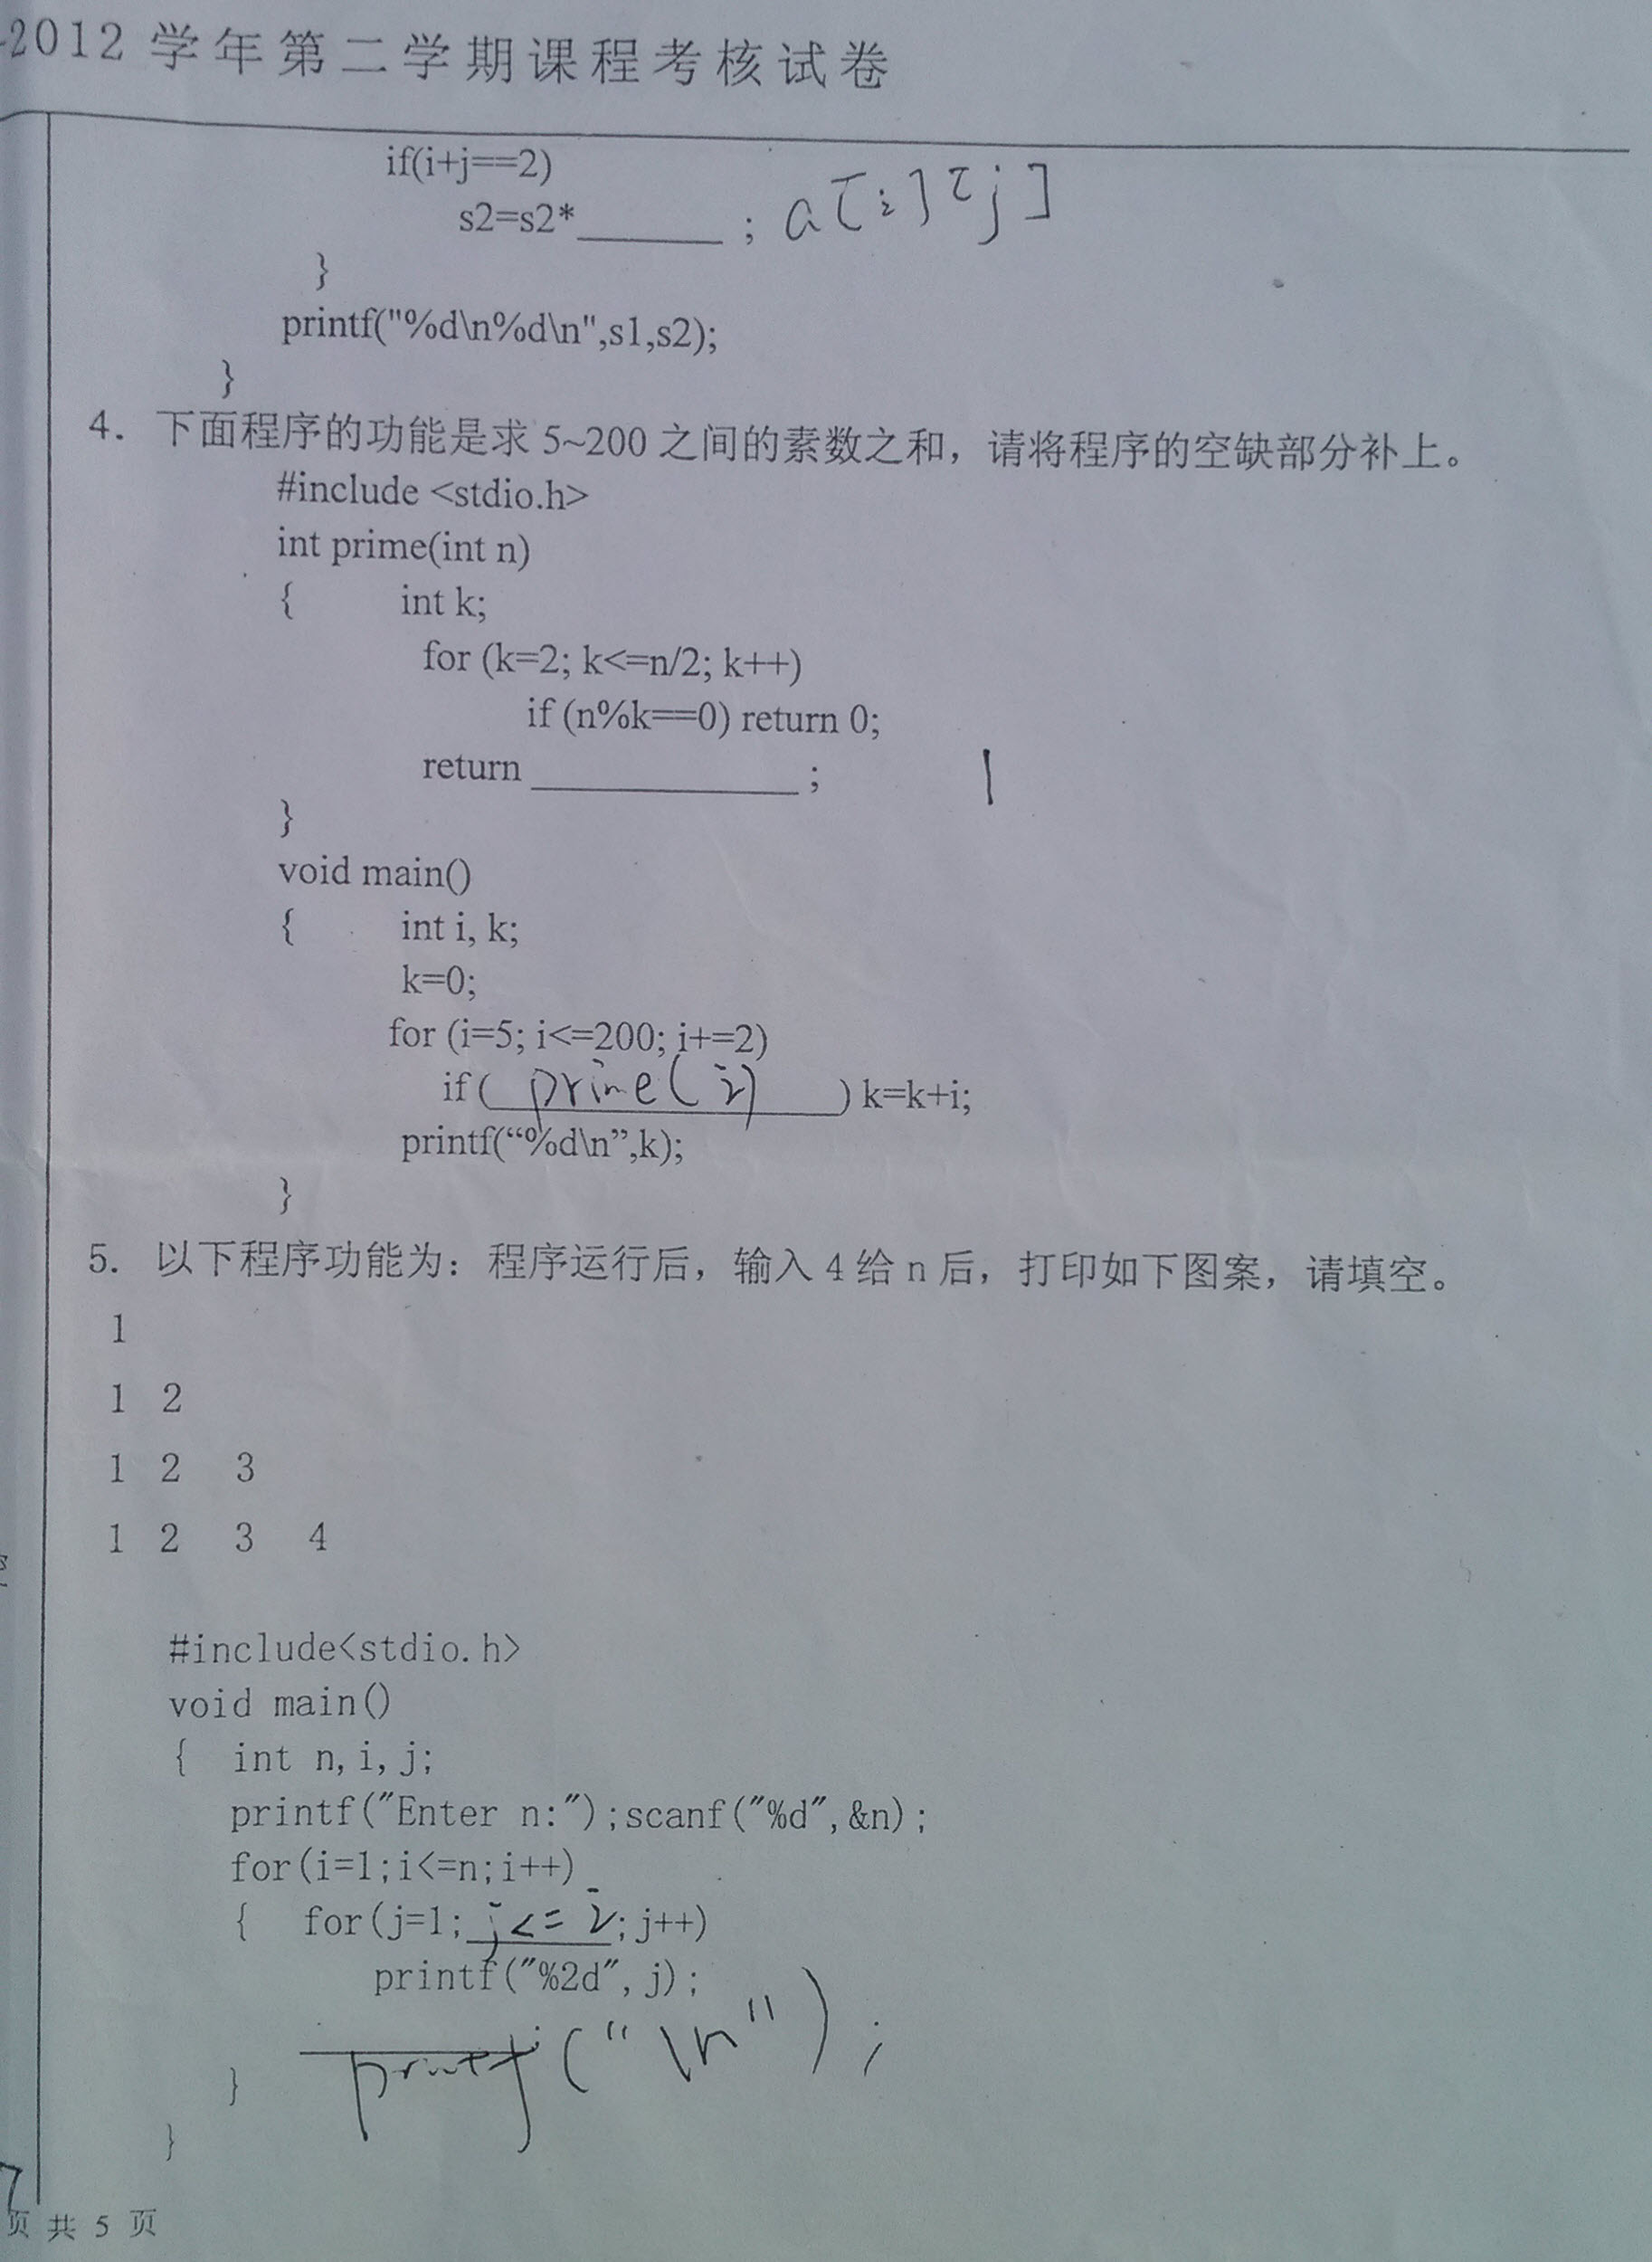 -2012 学年第二学期课程考核试卷
if(i+j==2)
s2=s2*______ ; a[i][j]
}
printf("%d\n%d\n",s1,s2);
}
4. 下面程序的功能是求 5~200 之间的素数之和，请将程序的空缺部分补上。
#include <stdio.h>
int prime(int n)
{ int k;
for (k=2; k<=n/2; k++)
if (n%k==0) return 0;
return ____________ ; 1
}
void main()
{ int i, k;
k=0;
for (i=5; i<=200; i+=2)
if ( prime(i) ) k=k+i;
printf(“%d\n”,k);
}
5. 以下程序功能为：程序运行后，输入 4 给 n 后，打印如下图案，请填空。
1
1 2
1 2 3
1 2 3 4
#include<stdio.h>
void main()
{ int n,i,j;
printf("Enter n:");scanf("%d",&n);
for(i=1;i<=n;i++)
{ for(j=1; j<=i ;j++)
printf("%2d",j);
printf("\n");
}
}
页 共 5 页